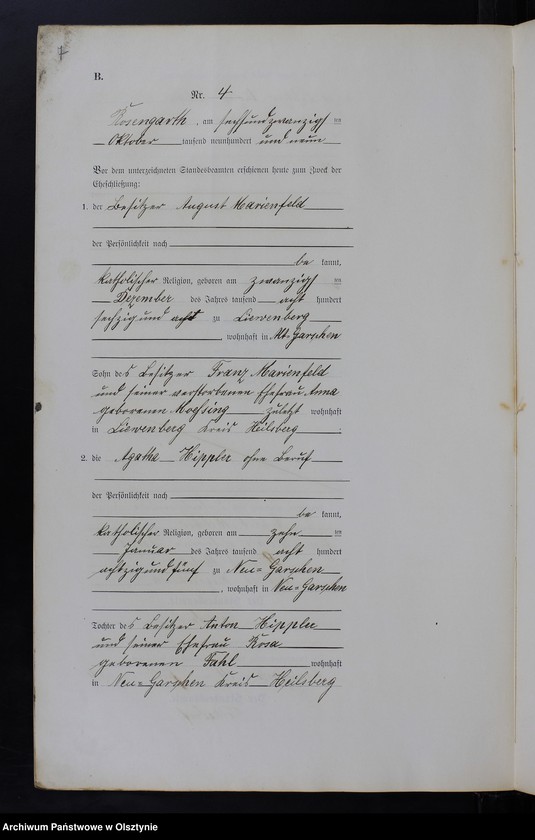 B.
Nr. 4
Rosengarth, am sechsundzwanzigsten
Oktober tausend neunhundert und neun
Vor dem unterzeichneten Standesbeamten erschienen heute zum Zweck der
Eheschließung:
1. der Besitzer August Marienfeld
der Persönlichkeit nach
be kannt,
katholischer Religion, geboren am zwanzigsten
Dezember des Jahres tausend acht hundert
sechzig und acht zu Liewenberg
, wohnhaft in Alt-Garschen
Sohn des Besitzer Franz Marienfeld
und seiner verstorbenen Ehefrau Anna
geborenen zuletzt wohnhaft
in Liewenberg Kreis Heilsberg
2. die Agatha Hippler ohne Beruf
der Persönlichkeit nach
be kannt,
katholischer Religion, geboren am zehn ten
Januar des Jahres tausend acht hundert
achtzig und fünf zu Neu-Garschen
, wohnhaft in Neu-Garschen
Tochter des Besitzer Anton Hippler
und seiner Ehefrau Rosa
geborenen Fahl wohnhaft
in Neu-Garschen Kreis Heilsberg
Archiwum Państwowe w Olsztynie